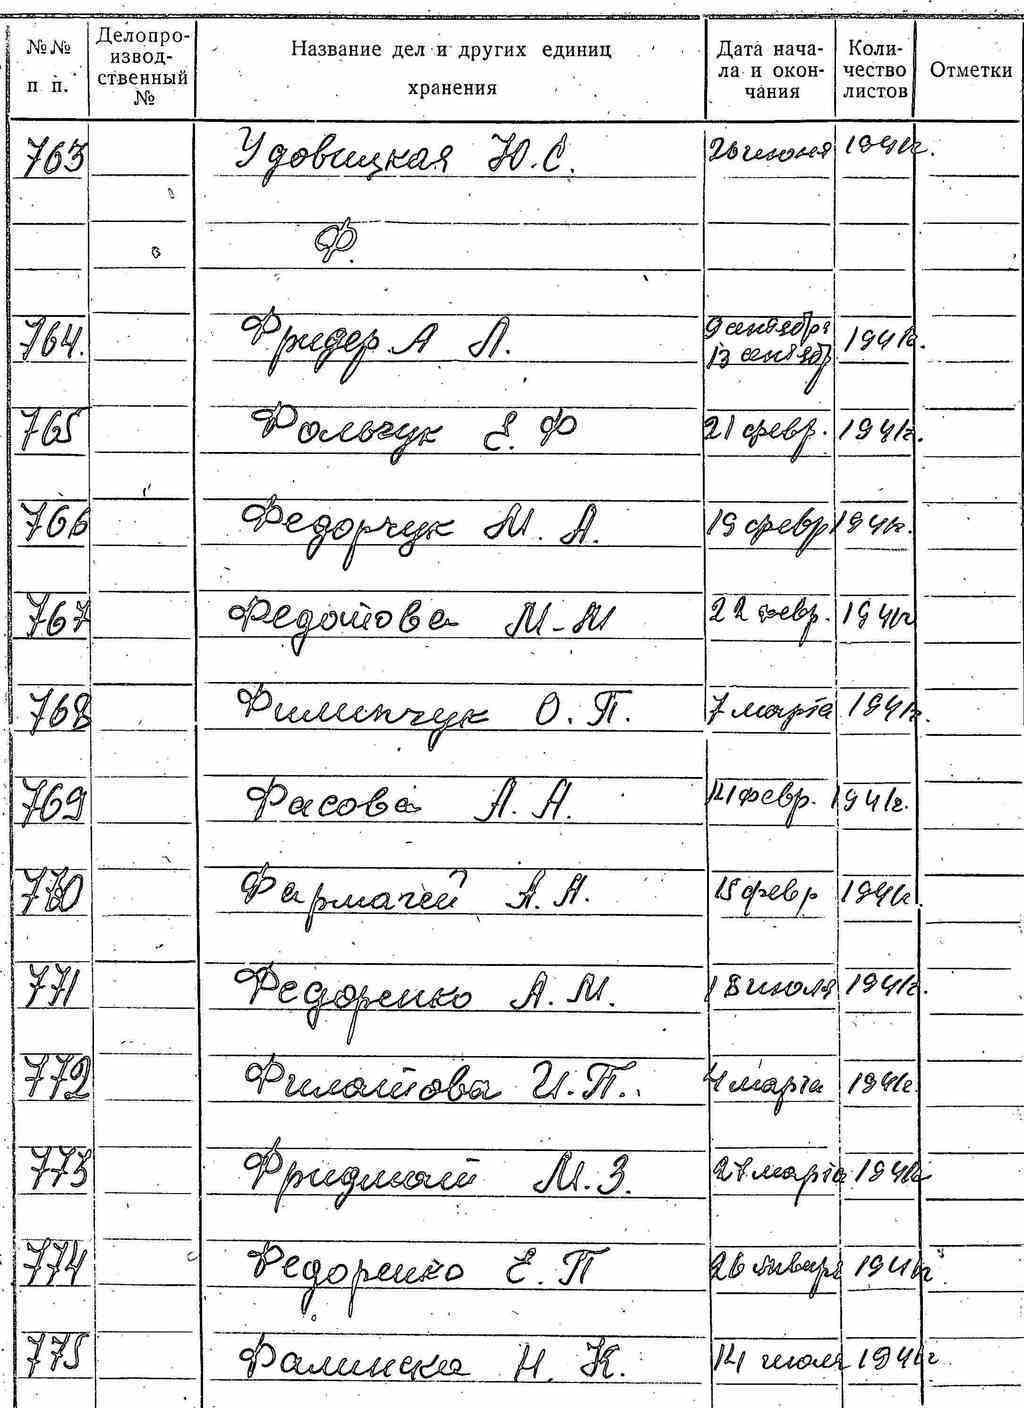 №№ п п.
Делопроизводственный №
Название дел и других единиц хранения
Дата начала и окончания
Количество листов
Отметки
763 Удовицкая Ю.С. 26 июня 1941г.
Ф.
764. Фридер А Л. 9 сентября 13 сентябр 1941г.
765 Фольчук Е. Ф 21 февр. 1941г.
766 Федорчук М. А. 19 февр 1941г.
767 Федотова М-И 22 февр. 1941г
768 Филипчук О. П. 7 марта 1941г.
769 Фасова А. А. 14 февр. 1941г.
770 Фармагей А. А. 15 февр 1941г.
771 Федоренко А. М. 18 июля 1941г.
772 Филатова И. П. 4 марта 1941г.
773 М. З. 27 марта 1941г
774 Федоренко Е. П 26 января 1941г
775 Фалинска Н. К. 14 июля 1941г